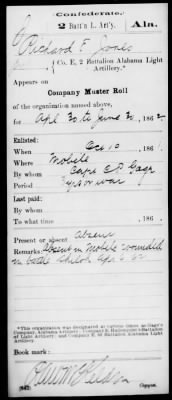 (Confederate.)
2 Batt'n L. Art'y. Ala.
Richard F. Jones
Co. E, 2 Battalion Alabama Light
Artillery.*
Appears on
Company Muster Roll
of the organization named above,
for Apl 30 to June 30, 1862.
Enlisted:
When Oct 10, 186
Where Mobile
By whom Capt. C.P. Gage
Period
Last paid:
By whom
To what time , 186
Present or absent Absent
Remarks: Absent in Mobile wounded
in battle Shiloh Apr 6 62
*This organization was designated at various times as Gage's
Company, Alabama Artillery;
Light Artillery; and Company E, 2d Battalion Alabama Light
Artillery.
Book mark:
(642) Copyist.